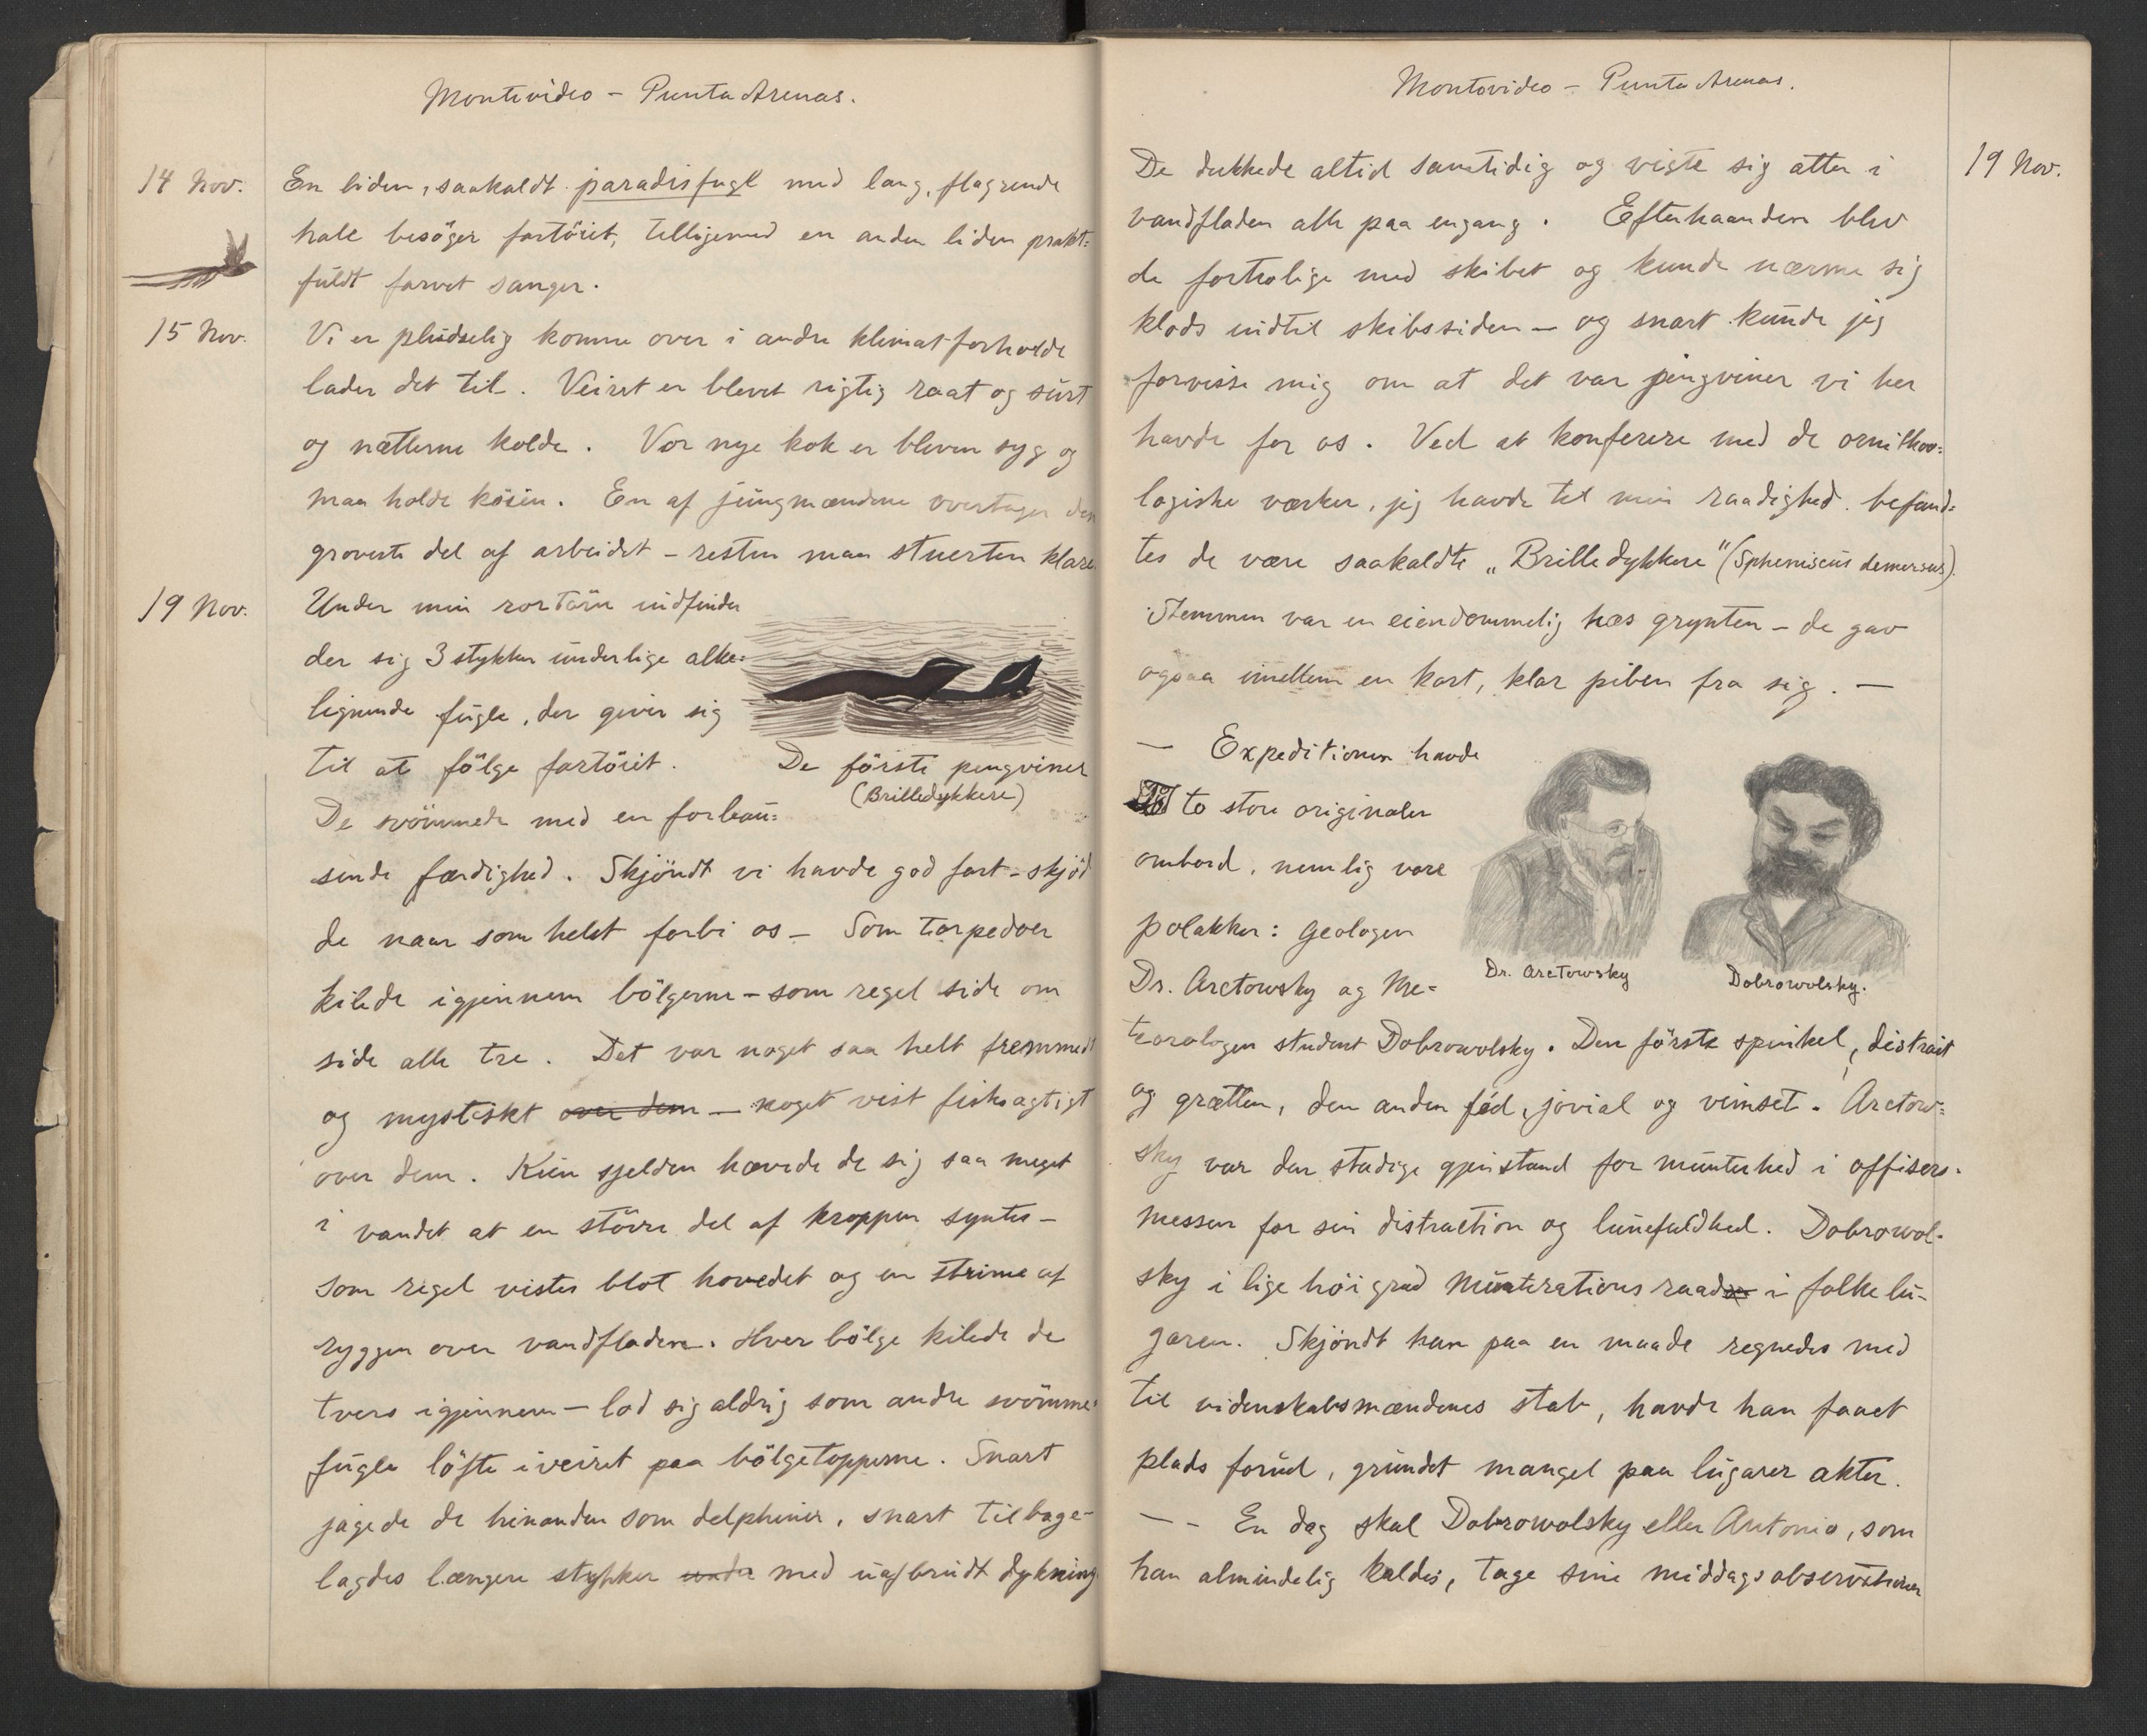 Montevideo – Punta Arenas.
14 Nov.
En liden, saakaldt paradisfugl med lang, flagrende
hale besöger fartöiet, tilligemed en anden liden prakt=
fuldt farvet sanger.
15 Nov.
Vi er pludselig komne over i andre klimatforholde
lader det til. Veiret er blevet rigtig raat og surt
og nætterne kolde. Vor nye kok er bleven syg og
maa holde köien. En af jungmændene overtager den
groveste del af arbeidet – resten maa stuerten klare
19 Nov.
Under min rortörn indfinder
der sig 3 stykker underlige alke=
lignende fugle, der giver sig
til at fölge fartöiet.
De förste pengviner
(Brilledykkere)
De svömmede med en forbau=
sende færdighed. Skjöndt vi havde god fart – skjöd
de naar som helst forbi os – Som torpedoer
kilede igjennem bölgerne – som regel side om
side alle tre. Det var noget saa helt fremmedt
og mystiskt over dem – noget vist fiskeagtigt
over dem. Kun sjelden hævede de sig saa meget
i vandet at en större del af kroppen syntes –
som regel vistes blot hovedet og en strime af
ryggen over vandfladen. Hver bölge kilede de
tvers igjennem – lod sig aldrig som andre svömme=
fugle löfte iveiret paa bölgetopperne. Snart
jagede de hinanden som delphiner, snart tilbage-
lagdes længere stykker under med uafbrudt dykning
Montevideo – Punta Arenas.
19 Nov.
De dukkede altid samtidig og viste sig atter i
vandfladen alle paa engang. Efterhaanden blev
de fortrolige med skibet og kunde nærme sig
klods indtil skibssiden – og snart kunde jeg
forvisse mig om at det var pengviner vi her
havde for os. Ved at konferere med de ornithoo=
logiske værker, jeg havde til min raadighed befand=
tes de være saakaldte „Brilledykkere" (Spheniscus demersus).
Stemmen var en eiendommelig hæs grynten – de gav
ogsaa imellem en kort, klar piben fra sig. –
– Expeditionen havde
to store originaler
ombord, nemlig vore
polakker: Geologen
Dr. Arctowsky og Me=
Dr. Arctowsky
Dobrowolsky.
teorologen student Dobrowolsky. Den förste spinkel, distrait
og grætten, den anden féd, jovial og vimset. Arctow=
sky var den stadige gjenstand for munterhed i offisers-
messen for sin distraction og lunefuldhed. Dobrowol-
sky i lige höi grad Munterationsraad i folkelu-
garen. Skjöndt han paa en maade regnedes med
til videnskabsmændenes stab, havde han faaet
plads forud, grundet mangel paa lugarer akter.
– – En dag skal Dobrowolsky eller Antonio, som
han almindelig kaldes, tage sine middagsobservationer